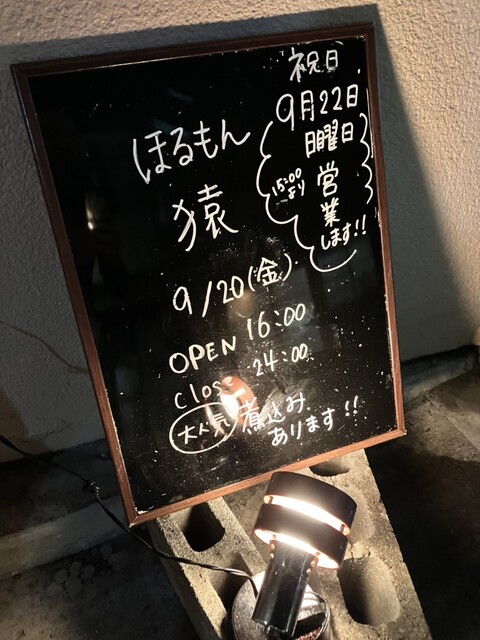 祝日
9月22日
日曜日
15:00
より
営
業
します!!
ほるもん
猿
9/20(金)
OPEN 16:00
Close 24:00
大人気 煮込み
あります!!